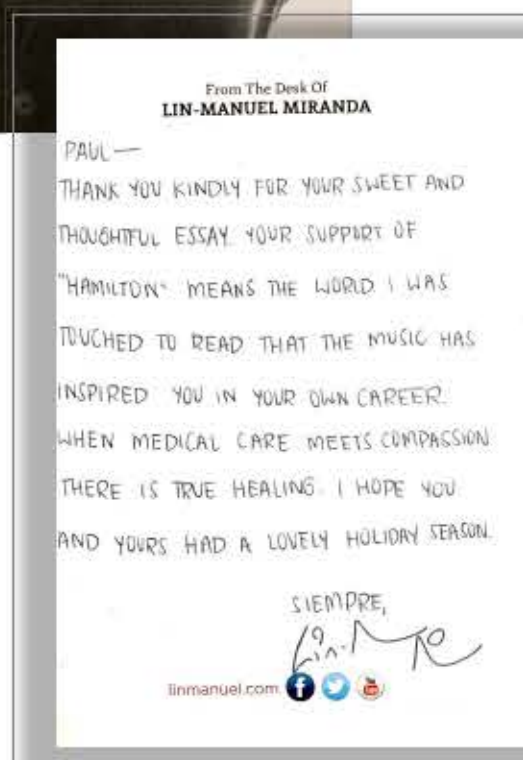 From The Desk Of
LIN-MANUEL MIRANDA
PAUL—
THANK YOU KINDLY FOR YOUR SWEET AND
THOUGHTFUL ESSAY. YOUR SUPPORT OF
"HAMILTON" MEANS THE WORLD. I WAS
TOUCHED TO READ THAT THE MUSIC HAS
INSPIRED YOU IN YOUR OWN CAREER.
WHEN MEDICAL CARE MEETS COMPASSION
THERE IS TRUE HEALING. I HOPE YOU
AND YOURS HAD A LOVELY HOLIDAY SEASON.
SIEMPRE,
Lin-M
linmanuel.com